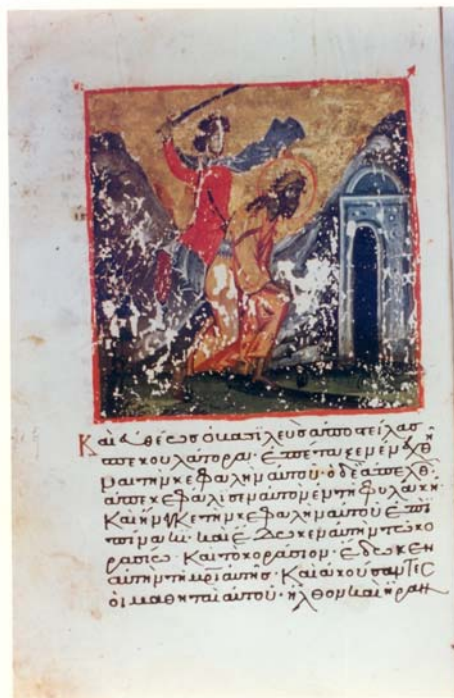 Καὶ εὐθέως ὁ βασιλεὺς ἀποστείλας
σπεκουλάτορα· ἐπέταξεν ἐνεχθῆ
ναι τὴν κεφαλὴν αὐτοῦ· ὁ δὲ ἀπελθ
ἀπεκεφάλισεν αὐτὸν ἐν τῆ φυλακῆ·
Καὶ ἤνεγκε τὴν κεφαλὴν αὐτοῦ ἐπὶ
πίνακι· καὶ ἔδωκεν αὐτὴν τῶ κο
ρασίω· Καὶ τὸ κοράσιον· ἔδωκεν
αὐτὴν τῆ μρὶ αὐτῆς· Καὶ ἀκούσαντες
οἱ μαθηταὶ αὐτοῦ· ἦλθον καὶ ἦραν